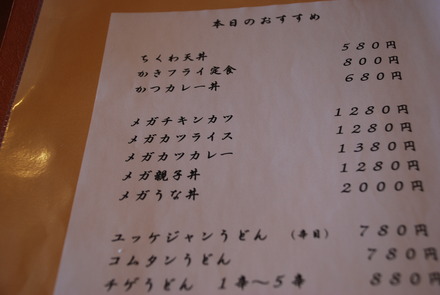 本日のおすすめ
ちくわ天丼 580円
かきフライ定食 800円
かつカレー丼 680円
メガチキンカツ 1280円
メガカツライス 1280円
メガカツカレー 1380円
メガ親子丼 1280円
メガうな丼 2000円
ユッケジャンうどん (辛目) 780円
コムタンうどん 780円
チゲうどん 1辛～5辛 880円